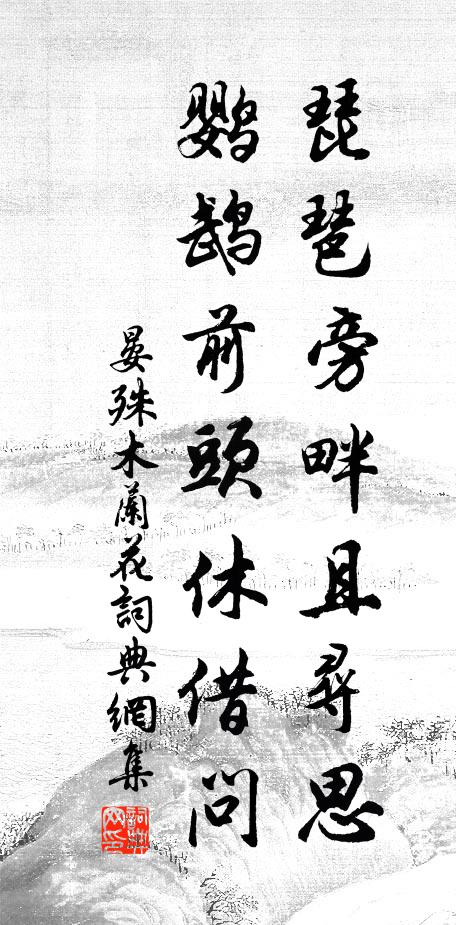 琵琶旁畔且尋思
鸚鵡前頭休借問
晏殊木蘭花詞典網集